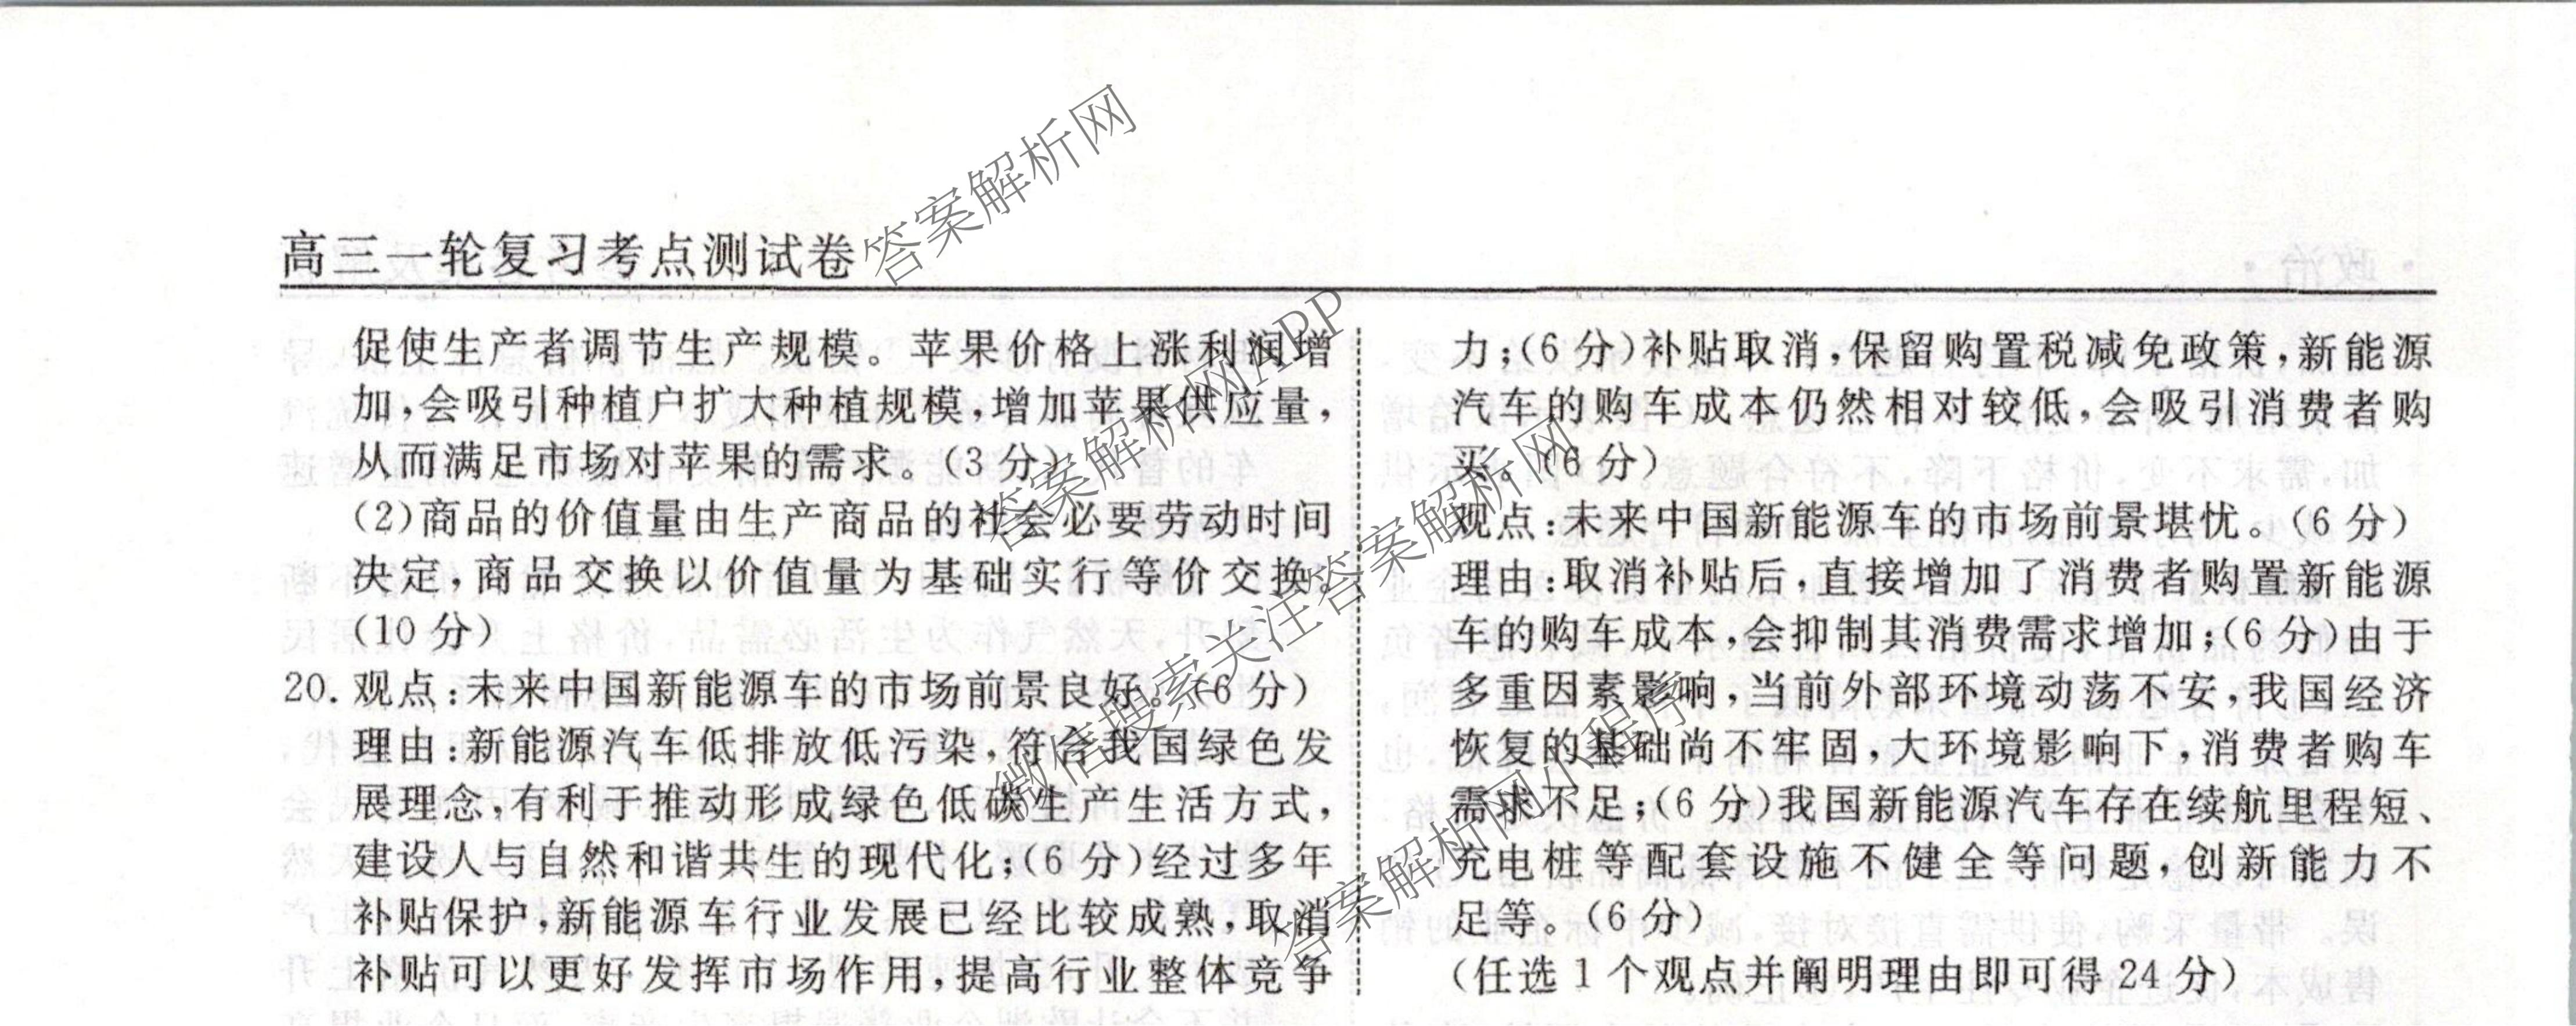 高三一轮复习考点测试卷
促使生产者调节生产规模。苹果价格上涨利润增
加,会吸引种植户扩大种植规模,增加苹果供应量,
从而满足市场对苹果的需求。(3分)
(2)商品的价值量由生产商品的社会必要劳动时间
决定,商品交换以价值量为基础实行等价交换。
(10分)
20.观点:未来中国新能源车的市场前景良好。(6分)
理由:新能源汽车低排放低污染,符合我国绿色发
展理念,有利于推动形成绿色低碳生产生活方式,
建设人与自然和谐共生的现代化;(6分)经过多年
补贴保护,新能源车行业发展已经比较成熟,取消
补贴可以更好发挥市场作用,提高行业整体竞争
力;(6分)补贴取消,保留购置税减免政策,新能源
汽车的购车成本仍然相对较低,会吸引消费者购
买。(6分)
观点:未来中国新能源车的市场前景堪忧。(6分)
理由:取消补贴后,直接增加了消费者购置新能源
车的购车成本,会抑制其消费需求增加;(6分)由于
多重因素影响,当前外部环境动荡不安,我国经济
恢复的基础尚不牢固,大环境影响下,消费者购车
需求不足;(6分)我国新能源汽车存在续航里程短、
充电桩等配套设施不健全等问题,创新能力不
足等。(6分)
(任选1个观点并阐明理由即可得24分)
答案解析网
答案解析网APP
微信搜索关注答案解析网
答案解析网小程序